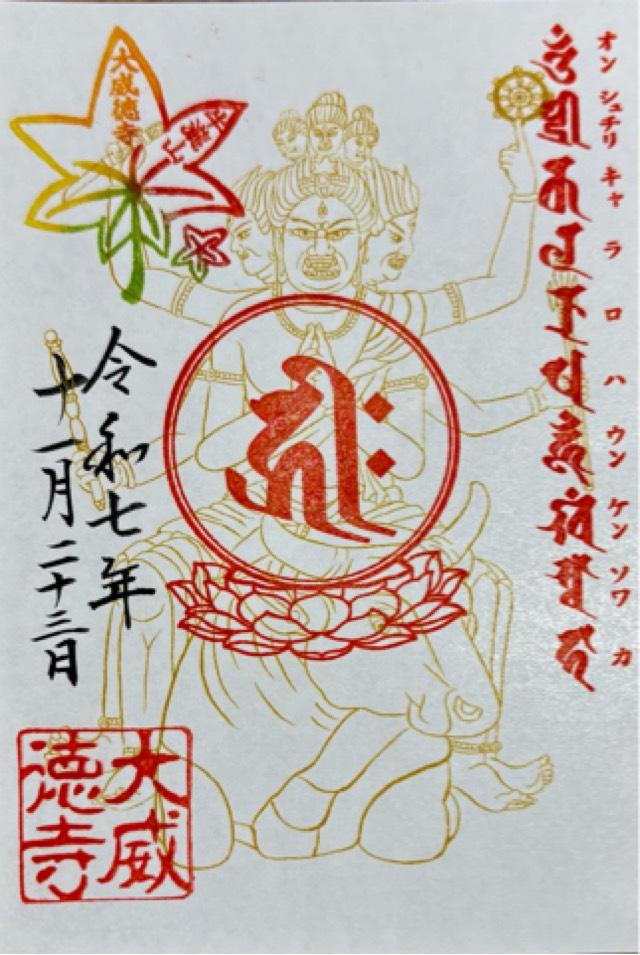 オン シュチリ キャ ラ ロ ハ ウン ケン ソワ カ
大威徳寺
牛瀧山
令和七年
十一月二十三日
大威
徳寺